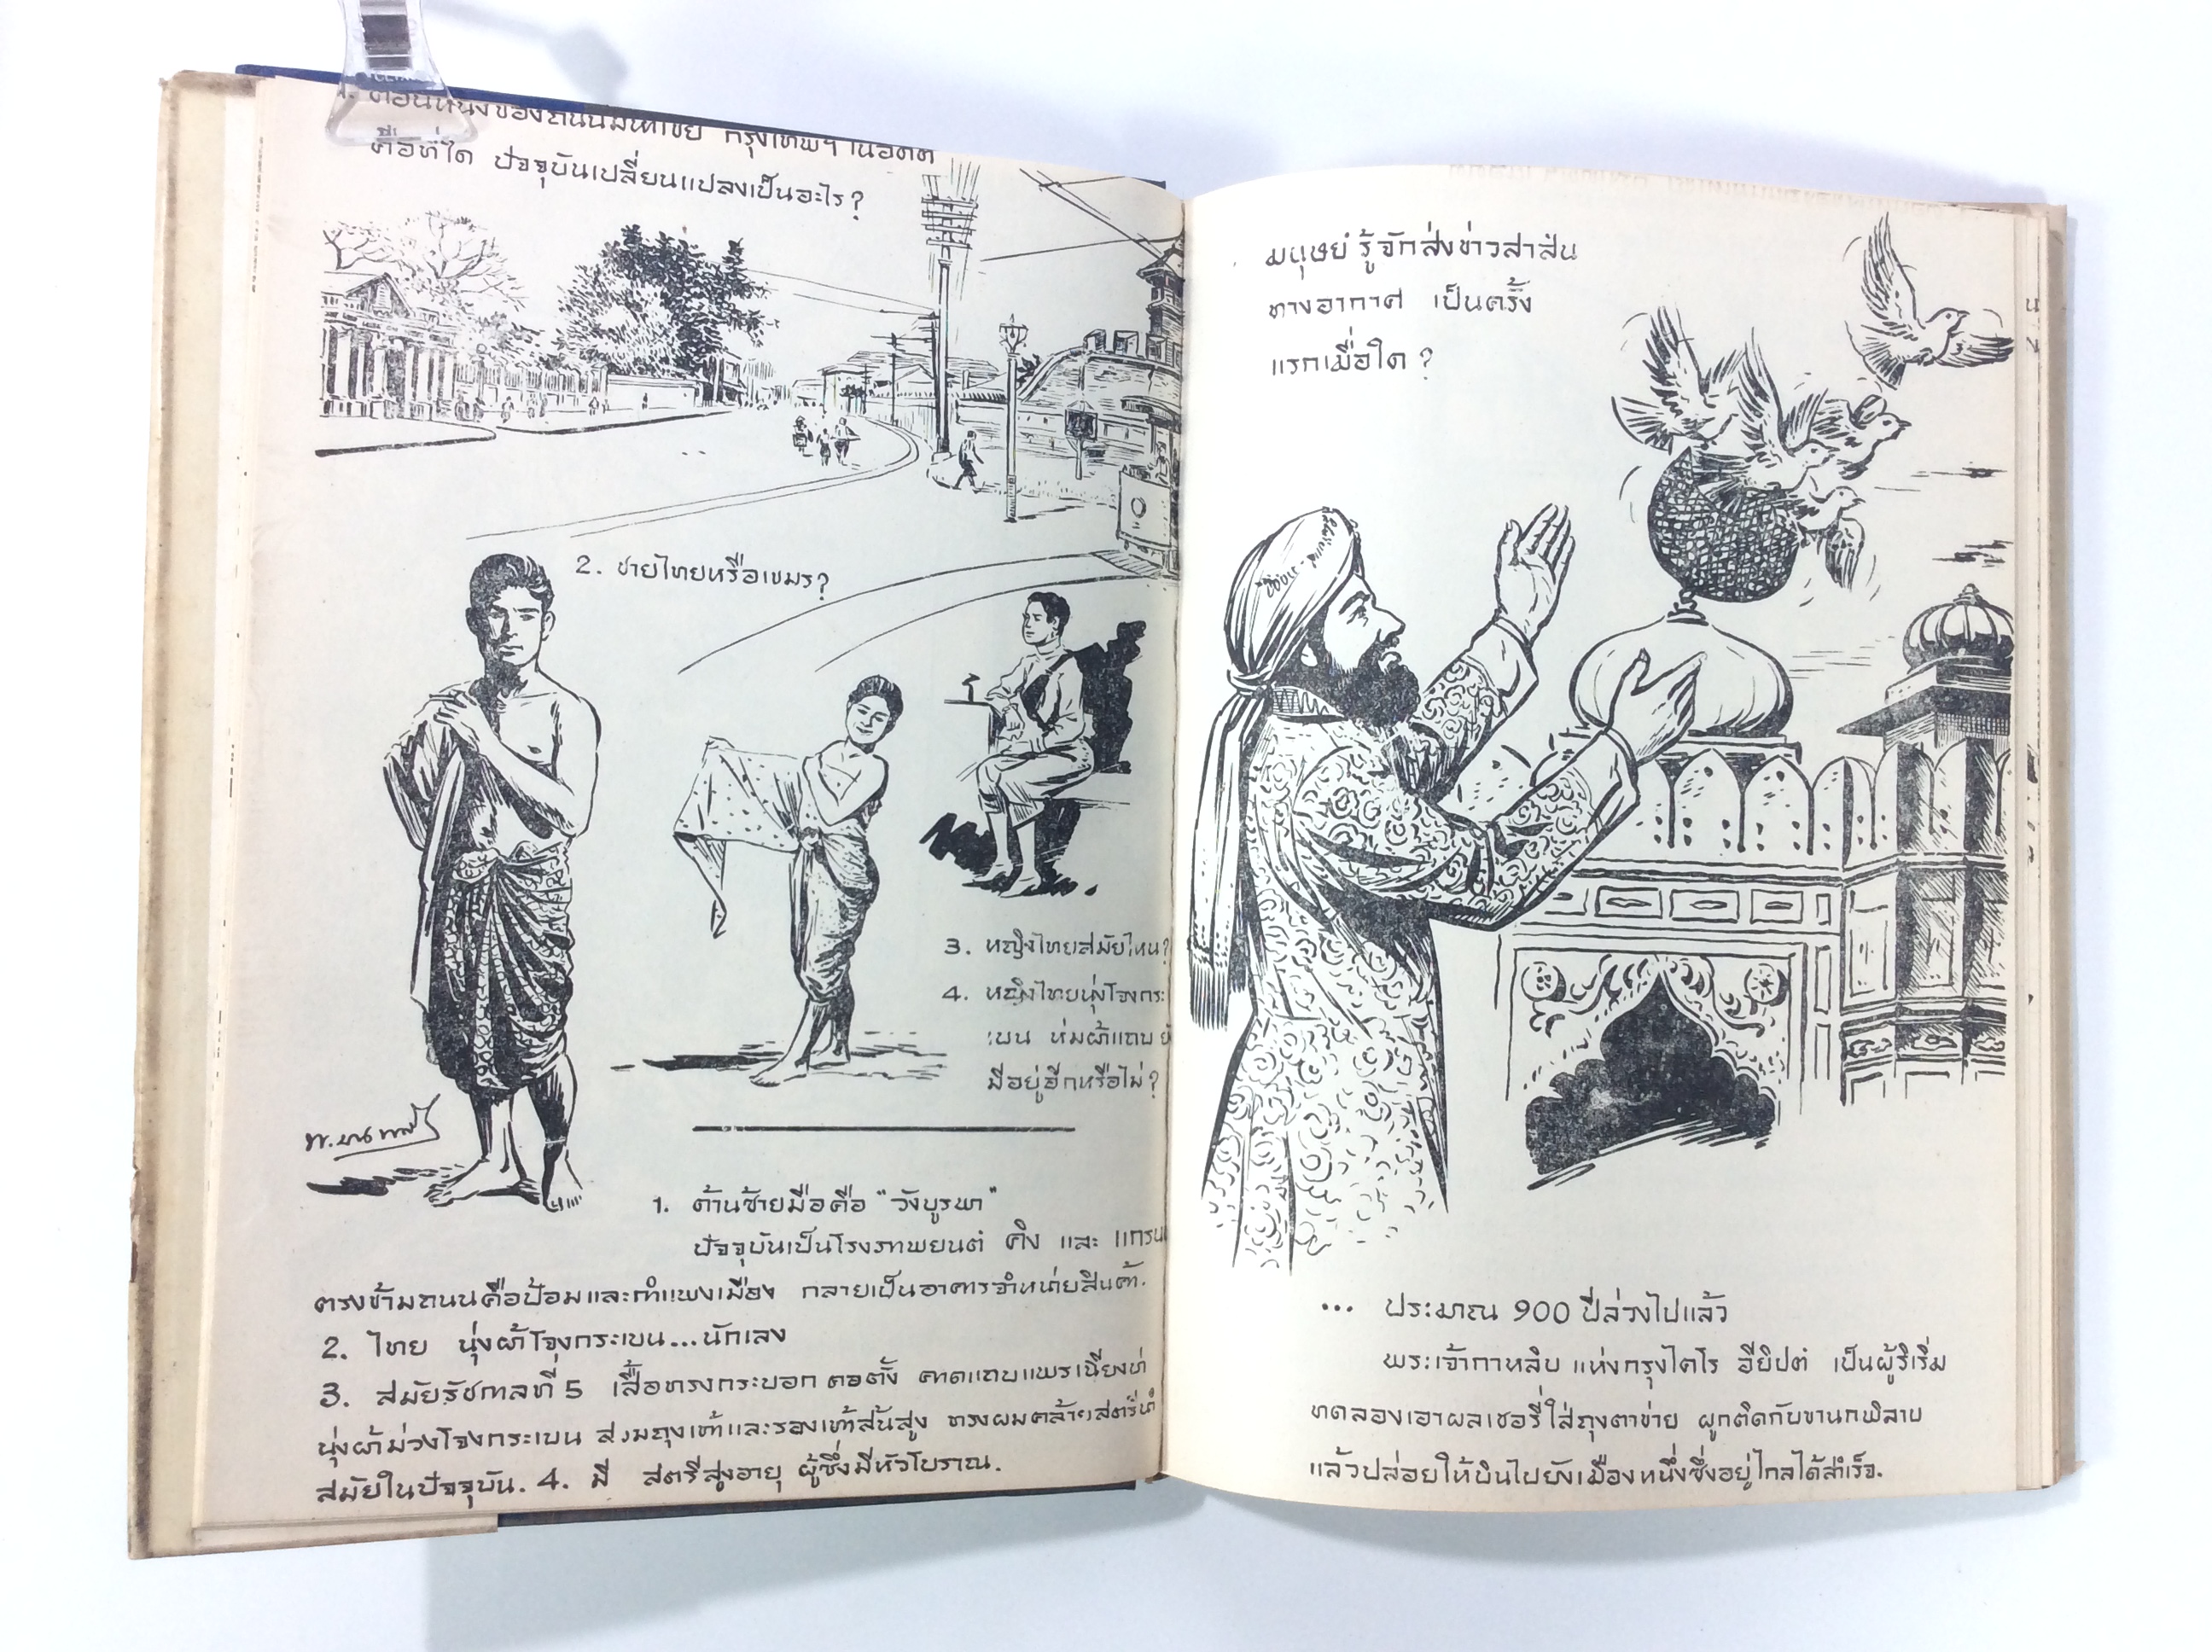 1. ตอนหนึ่งของถนนมหาไชย กรุงเทพฯ ในอดีต
คือที่ใด ปัจจุบันเปลี่ยนแปลงเป็นอะไร?
2. ชายไทยหรือเขมร?
3. หญิงไทยสมัยไหน?
4. หญิงไทยนุ่งโจงกระ
เบน ห่มผ้าแถบ ยัง
มีอยู่อีกหรือไม่?
1. ด้านซ้ายมือคือ "วังบูรพา"
ปัจจุบันเป็นโรงภาพยนต์ คิง และ แกรนด์
ตรงข้ามถนนคือป้อมและกำแพงเมือง กลายเป็นอาคารจำหน่ายสินค้า.
2. ไทย นุ่งผ้าโจงกระเบน...นักเลง
3. สมัยรัชกาลที่ 5 เสื้อทรงกระบอก คอตั้ง คาดแถบแพรเฉียงบ่า
นุ่งผ้าม่วงโจงกระเบน สวมถุงเท้าและรองเท้าส้นสูง ทรงผมคล้ายสตรีนำ
สมัยในปัจจุบัน. 4. มี สตรีสูงอายุ ผู้ซึ่งมีหัวโบราณ.
มนุษย์รู้จักส่งข่าวสาส์น
ทางอากาศ เป็นครั้ง
แรกเมื่อใด?
... ประมาณ 900 ปีล่วงไปแล้ว
พระเจ้ากาหลิบ แห่งกรุงไคโร อียิปต์ เป็นผู้ริเริ่ม
ทดลองเอาผลเชอรี่ใส่ถุงตาข่าย ผูกติดกับขานกพิลาบ
แล้วปล่อยให้บินไปยังเมืองหนึ่งซึ่งอยู่ไกลได้สำเร็จ.